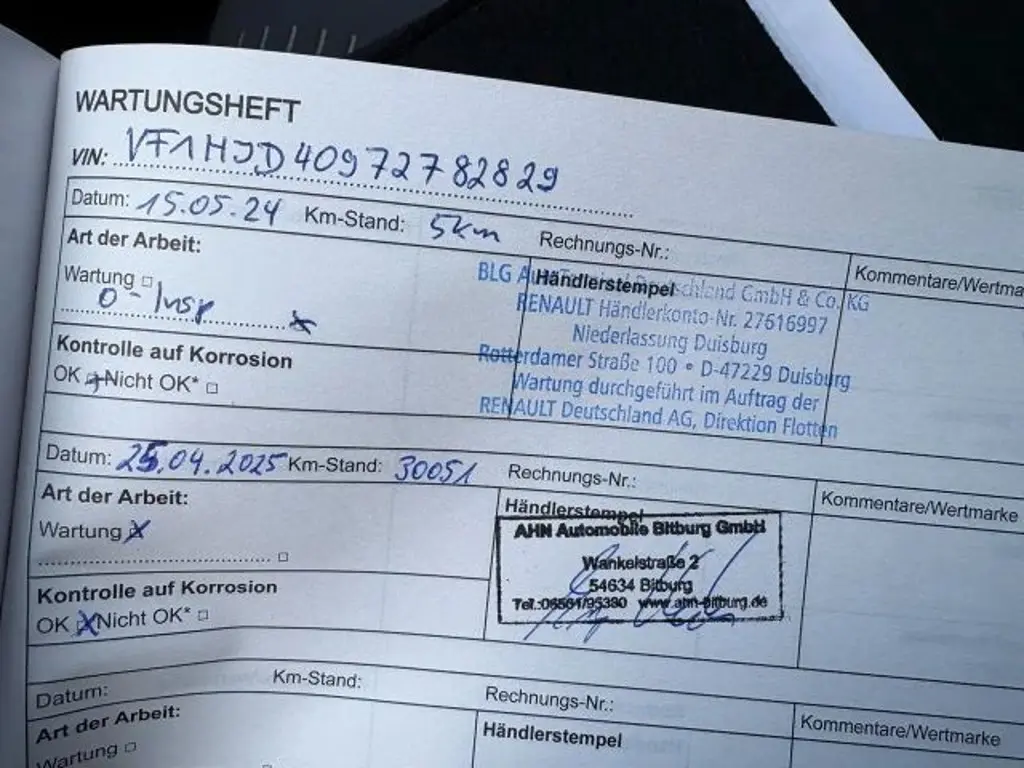 WARTUNGSHEFT
VIN: VF1HJD40972782829
Datum: 15.05.24 Km-Stand: 5km Rechnungs-Nr.:
Art der Arbeit:
Wartung □
0-Insp
Händlerstempel
Kommentare/Wertma
BLG Deutschland GmbH & Co. KG
RENAULT Händlerkonto-Nr. 27616997
Niederlassung Duisburg
Rotterdamer Straße 100 • D-47229 Duisburg
Wartung durchgeführt im Auftrag der
RENAULT Deutschland AG, Direktion Flotten
Kontrolle auf Korrosion
OK Nicht OK* □
Datum: 25.04.2025 Km-Stand: 30051 Rechnungs-Nr.:
Art der Arbeit:
Wartung X
Händlerstempel
Kommentare/Wertmarke
AHN Automobile Bitburg GmbH
Wankelstraße 2
54634 Bitburg
Tel.:06561/95380 www.ahn-bitburg.de
Kontrolle auf Korrosion
OK X Nicht OK* □
Datum: Km-Stand: Rechnungs-Nr.:
Art der Arbeit:
Wartung □
Händlerstempel
Kommentare/Wertmarke